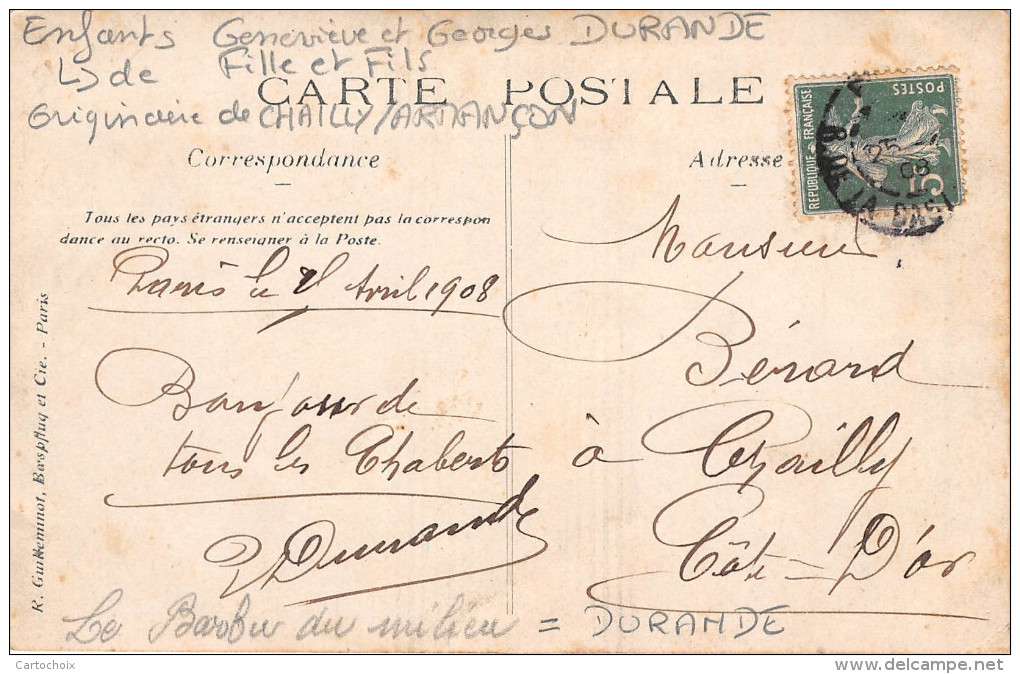 Enfants Geneviève et Georges DURANDE
↳ de Fille et Fils
CARTE POSTALE
originaire de CHAILLY/ARMANÇON
Correspondance
Adresse
Tous les pays étrangers n'acceptent pas la correspon
dance au recto. Se renseigner à la Poste.
REPUBLIQUE FRANÇAISE
POSTES
5
25
08
Paris le Avril 1908
Bonjour de
tous les Chaberts
Durande
Monsieur
Bénard
à Chailly
Côte-D'or
R. Guilleminot, Bœspflug et Cie. - Paris
Le Barbu du milieu = DURANDE
Cartochoix
delcampe.net